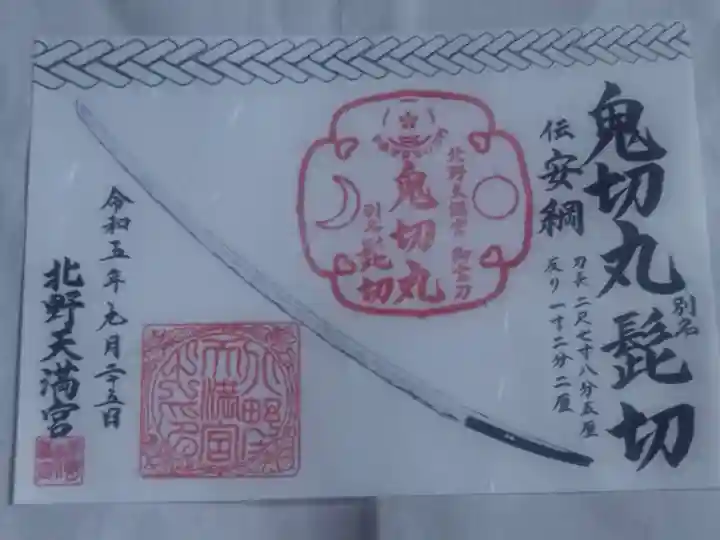 鬼切丸 別名 髭切
伝 安綱
刀長 二尺七寸八分五厘
反り 一寸二分二厘
北野天満宮 御宝刀
鬼切丸
別名 髭切
令和五年九月二十五日
北野天満宮